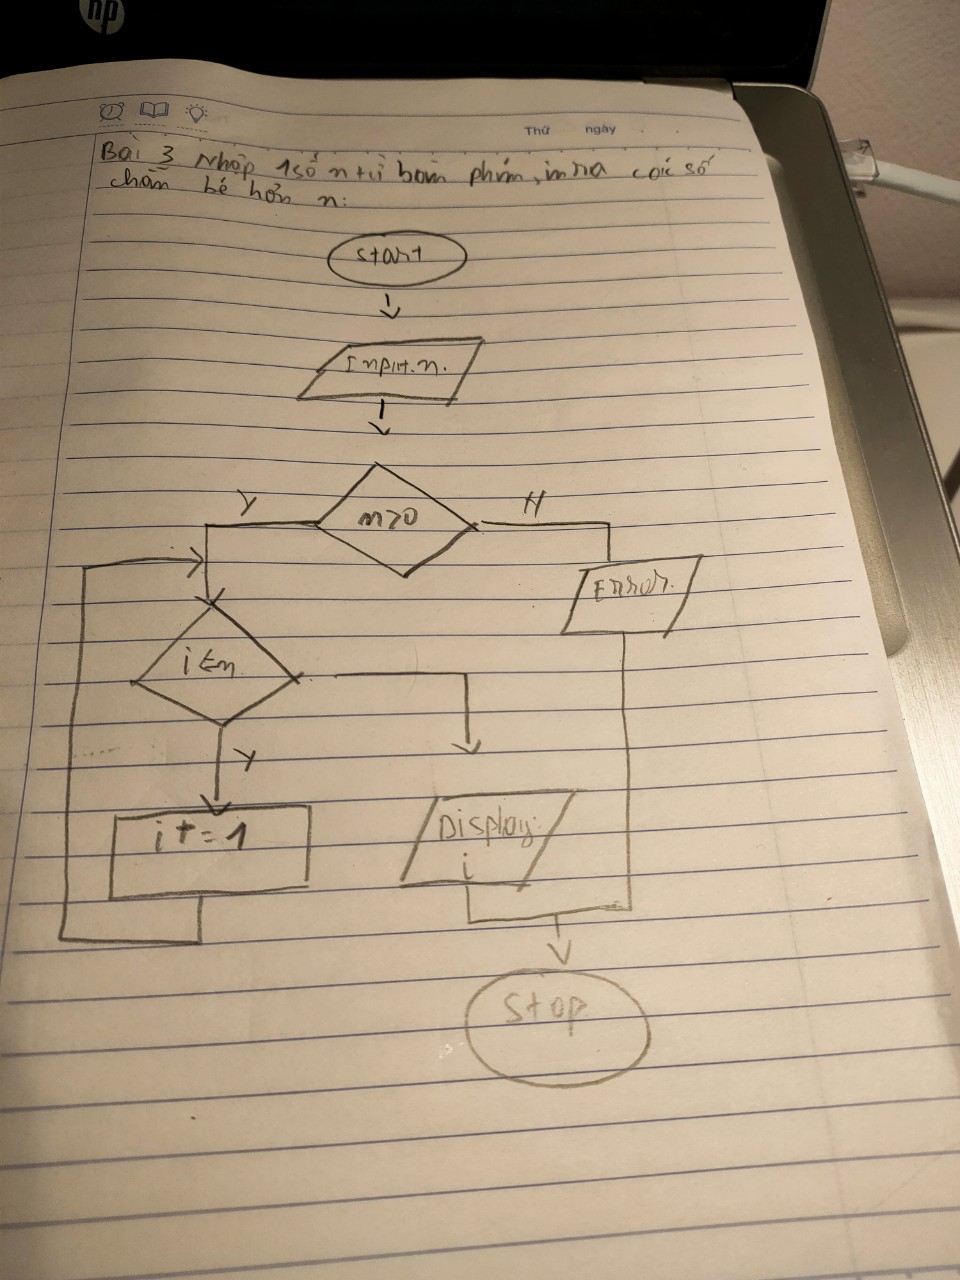 hp
Thứ ngày
Bài 3 Nhập 1 số n từ bàn phím, in ra các số
chẵn bé hơn n:
Start
Input n.
n>0
Y
N
Error.
i <= n
Y
i += 1
Display:
i
Stop